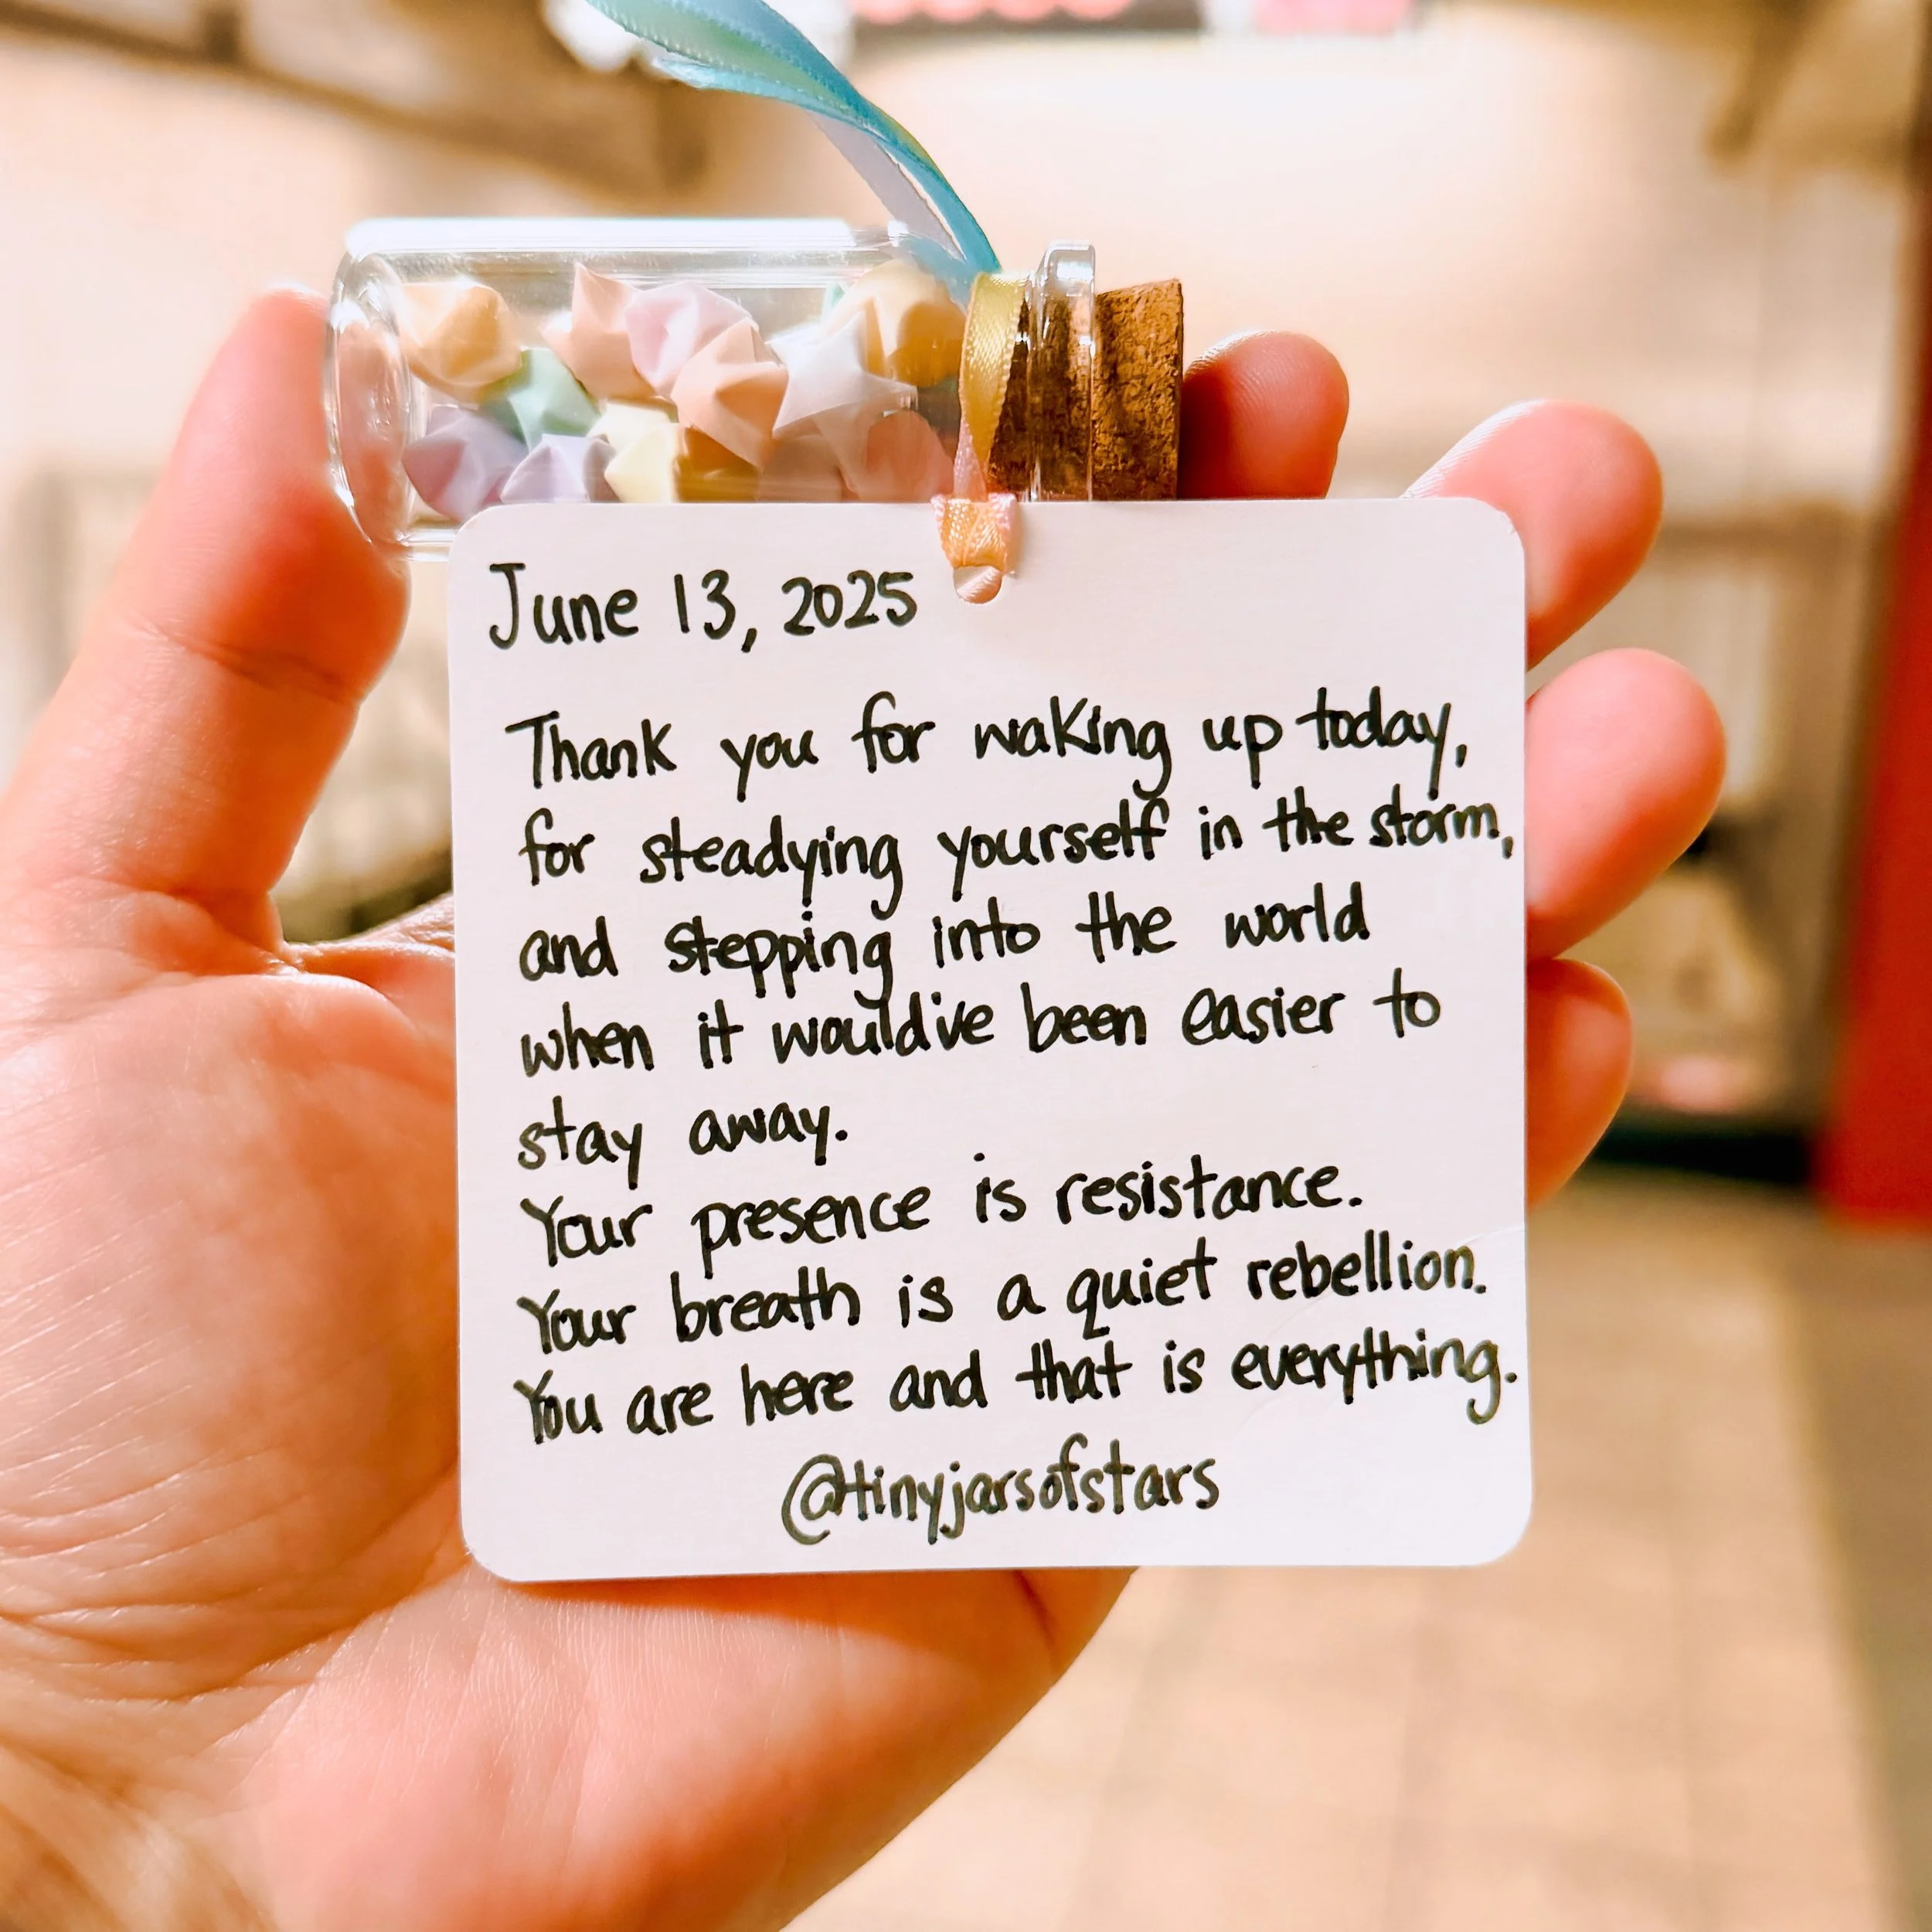 June 13, 2025
Thank you for waking up today,
for steadying yourself in the storm,
and stepping into the world
when it would've been easier to
stay away.
Your presence is resistance.
Your breath is a quiet rebellion.
You are here and that is everything.
@tinyjarsofstars